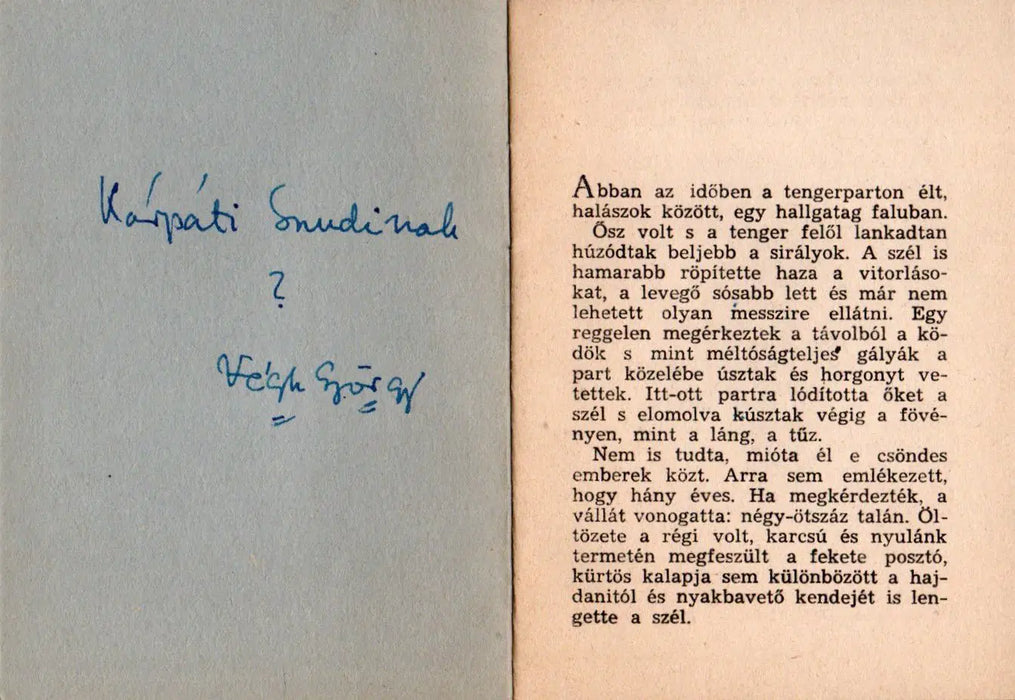 Kárpáti Smudinak
?
Végh György
Abban az időben a tengerparton élt,
halászok között, egy hallgatag faluban.
Ősz volt s a tenger felől lankadtan
húzódtak beljebb a sirályok. A szél is
hamarabb röpítette haza a vitorláso-
kat, a levegő sósabb lett és már nem
lehetett olyan messzire ellátni. Egy
reggelen megérkeztek a távolból a kö-
dök s mint méltóságteljes gályák a
part közelébe úsztak és horgonyt ve-
tettek. Itt-ott partra lódította őket a
szél s elomolva kúsztak végig a fövé-
nyen, mint a láng, a tűz.
Nem is tudta, mióta él e csöndes
emberek közt. Arra sem emlékezett,
hogy hány éves. Ha megkérdezték, a
vállát vonogatta: négy-ötszáz talán. Öl-
tözete a régi volt, karcsú és nyulánk
termetén megfeszült a fekete posztó,
kürtös kalapja sem különbözött a haj-
danitól és nyakbavető kendejét is len-
gette a szél.